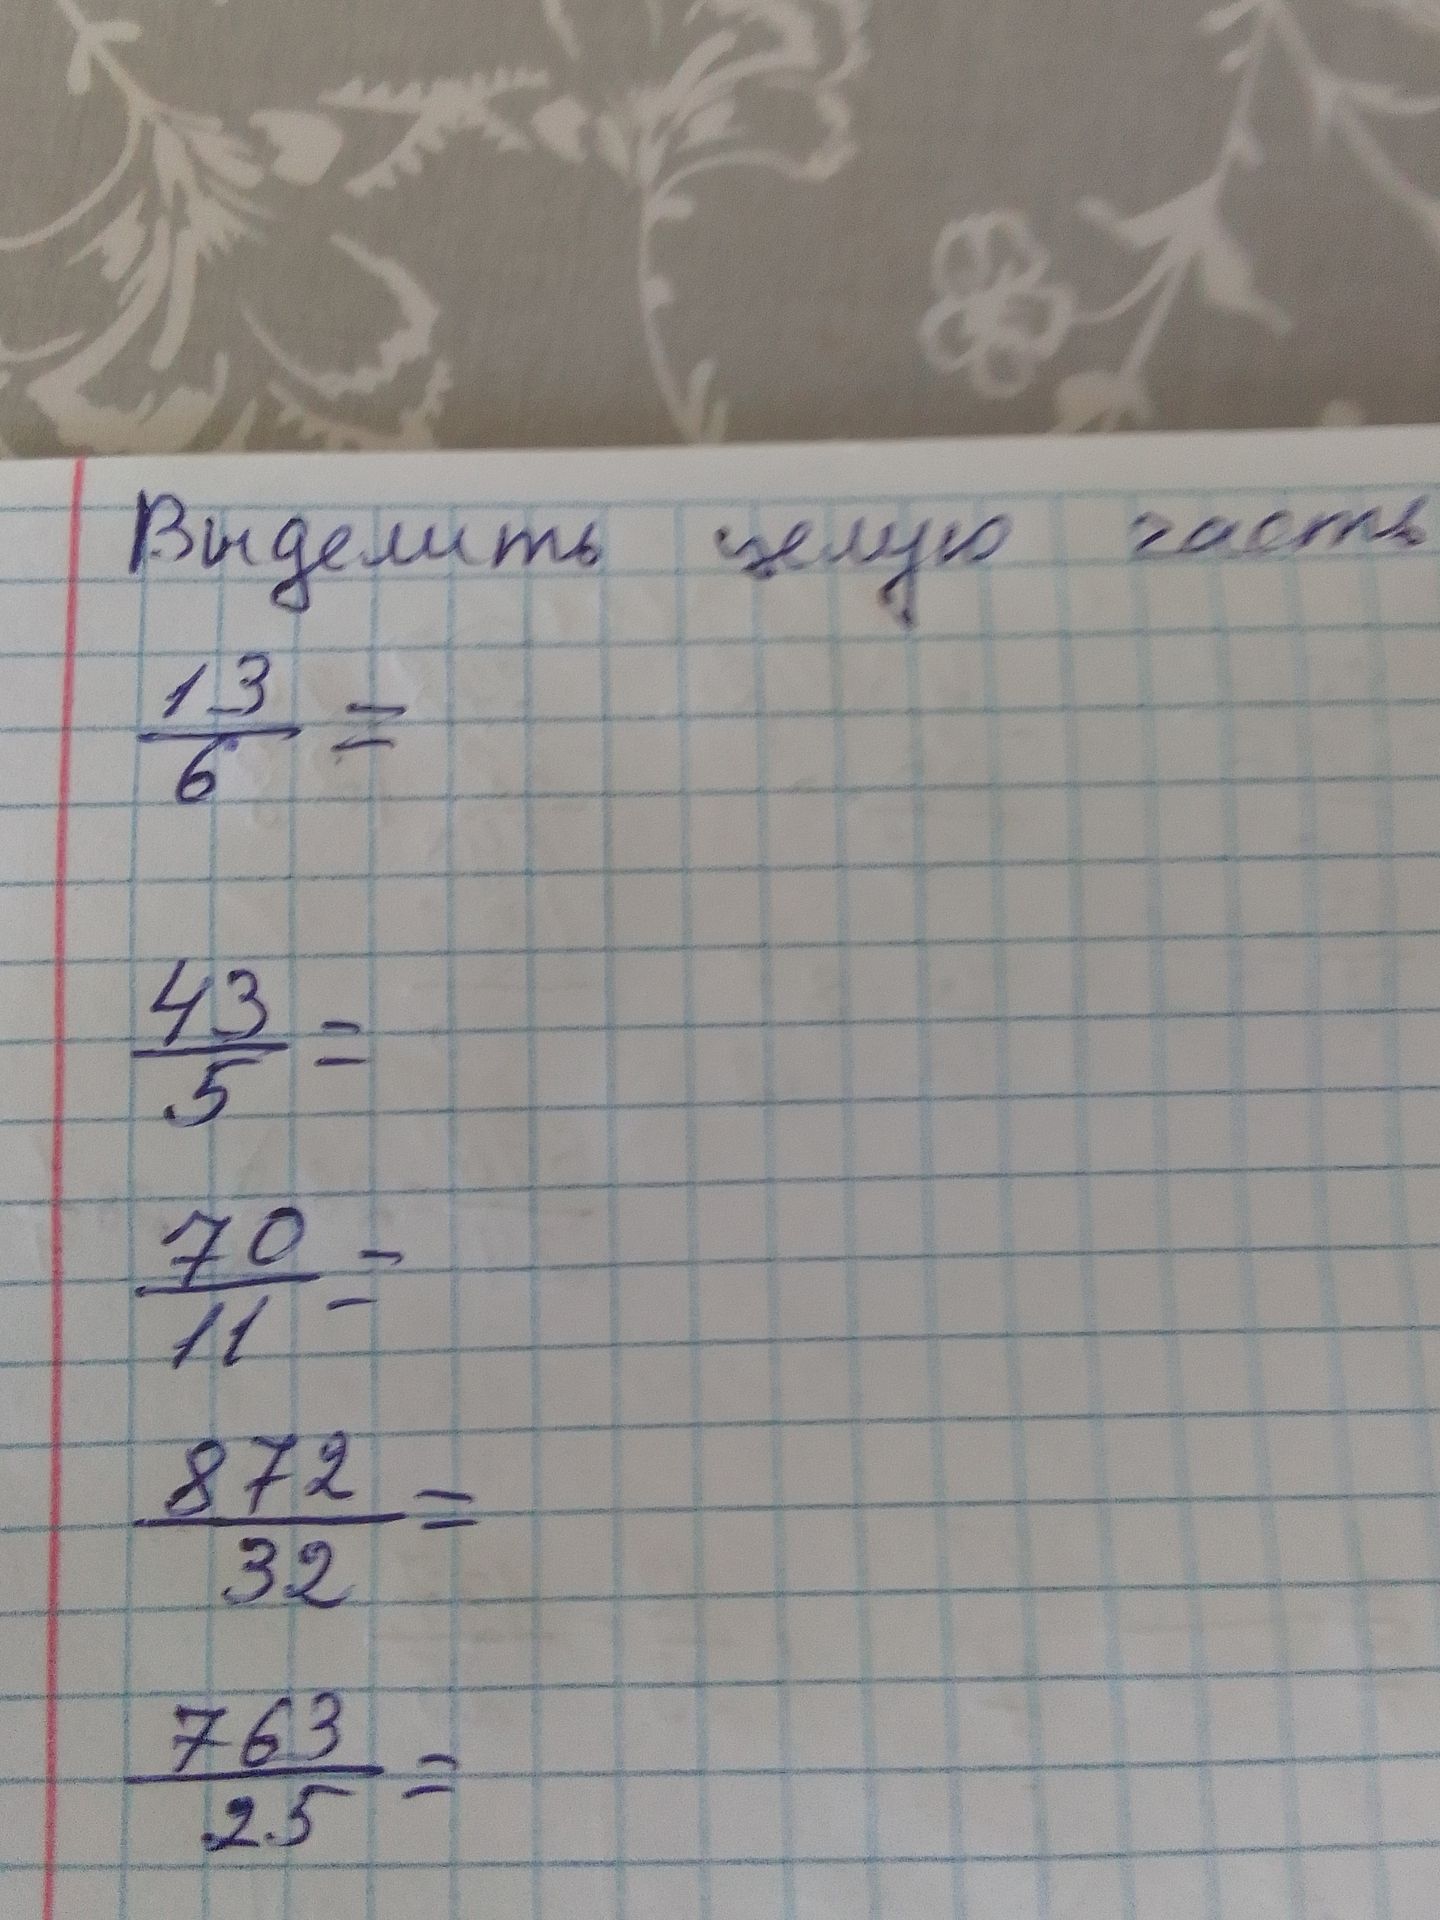 Выделить целую часть
13/6 =
43/5 =
70/11 =
872/32 =
763/25 =